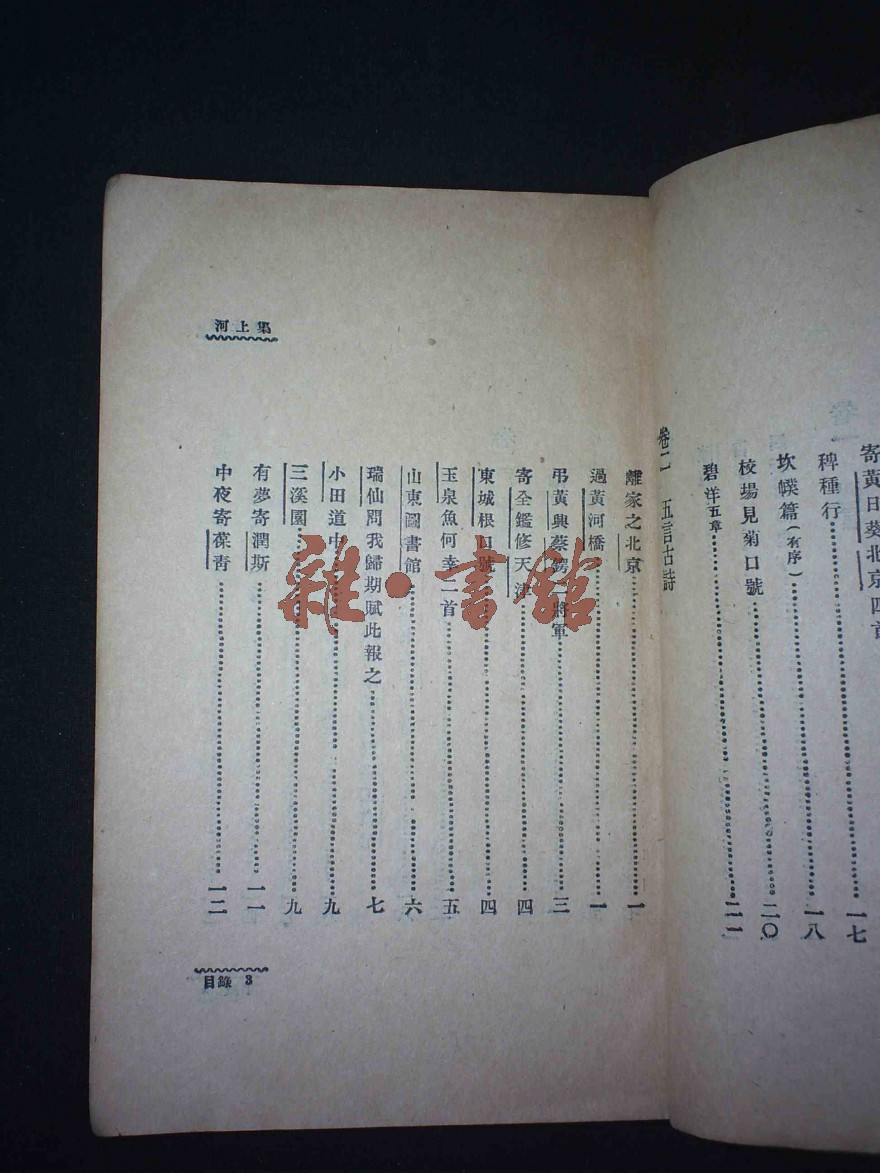 寄黃日葵北京四首
稗種行……一七
坎㠓篇(有序)……一八
校場見菊口號……二〇
碧洋五章……二一
卷二 五言古詩
離家之北京……一
過黃河橋……一
弔黃興蔡鍔二將軍……三
寄全鑑修天津……四
東城根口號……四
玉泉魚何幸二首……五
山東圖書館……六
瑞仙問我歸期賦此報之……七
小田道中……九
三溪園……九
有夢寄潤斯……一一
中夜寄葆青……一二
河上集
目錄 3
雜·書館